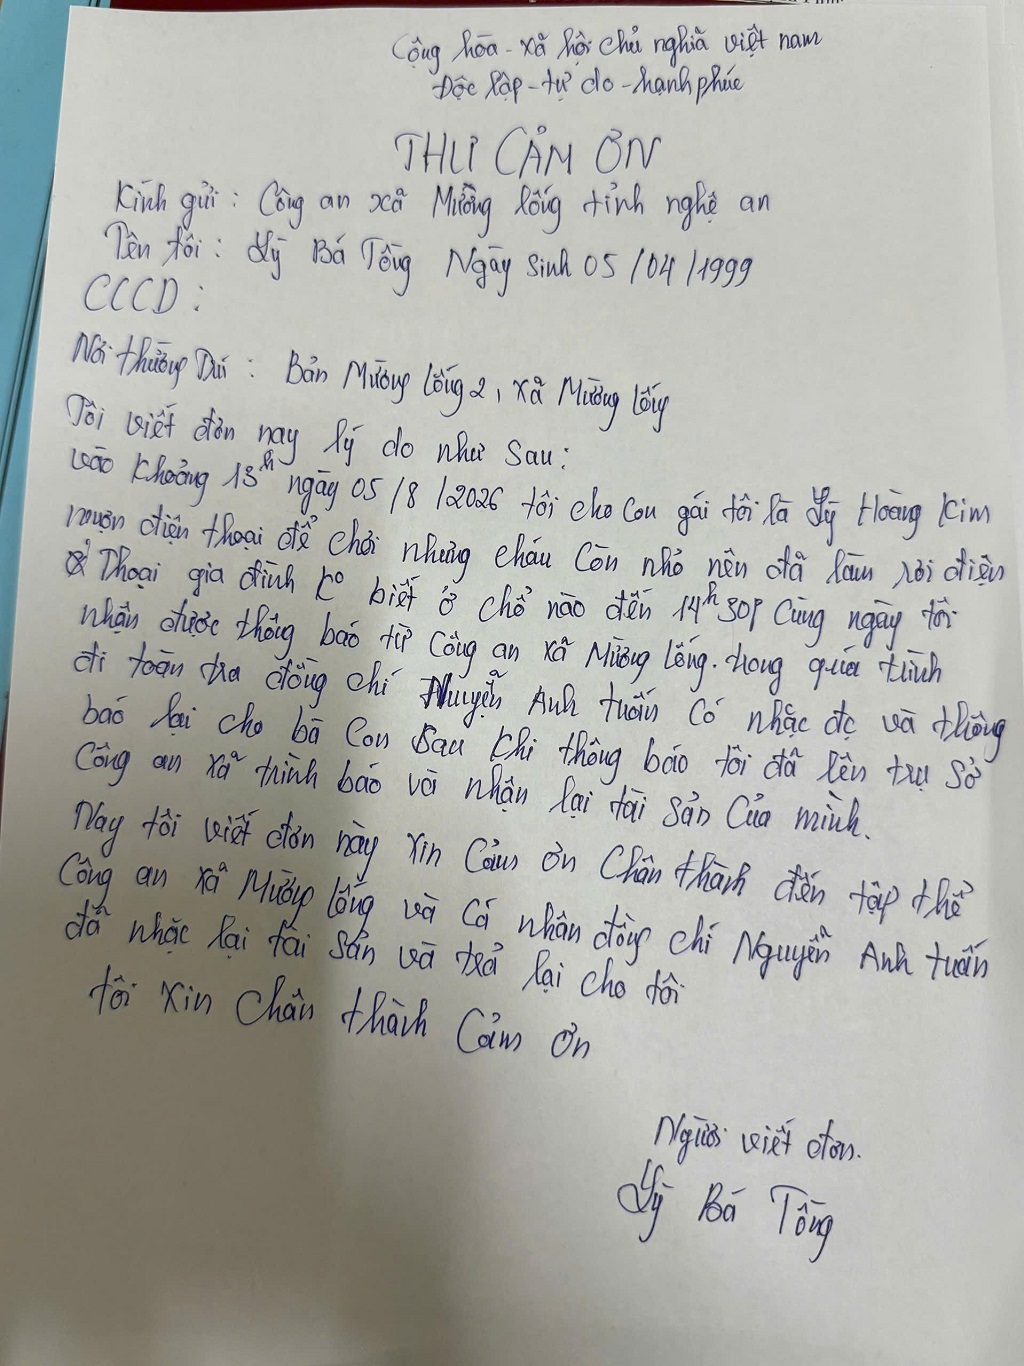 Cộng hòa - xã hội chủ nghĩa việt nam
Độc lập - tự do - hạnh phúc
THƯ CẢM ƠN
Kính gửi : Công an xã Mường lống tỉnh nghệ an
Tên tôi : Lỳ Bá Tồng Ngày sinh 05/04/1999
CCCD :
Nơi thường Trú : Bản Mường lống 2, xã Mường lống
Tôi viết đơn nay lý do như sau :
vào khoảng 13h ngày 05/8/2026 tôi cho con gái tôi là Lỳ Hoàng Kim
mượn điện thoại để chơi nhưng cháu còn nhỏ nên đã làm rơi điện
Thoại gia đình ko biết ở chổ nào đến 14h30p cùng ngày tôi
nhận được thông báo từ Công an xã Mường lống. trong quá trình
đi toàn tra đồng chí Nguyễn Anh tuấn có nhặc đc và thông
báo lại cho bà con sau khi thông báo tôi đã lên trụ sở
Công an xã trình báo và nhận lại tài sản của mình.
Nay tôi viết đơn này xin cảm ơn chân thành đến tập thể
Công an xã Mường lống và cá nhân đồng chí Nguyễn Anh tuấn
đã nhặc lại tài sản và trả lại cho tôi
tôi xin chân thành cảm ơn
Người viết đơn.
Lỳ Bá Tồng